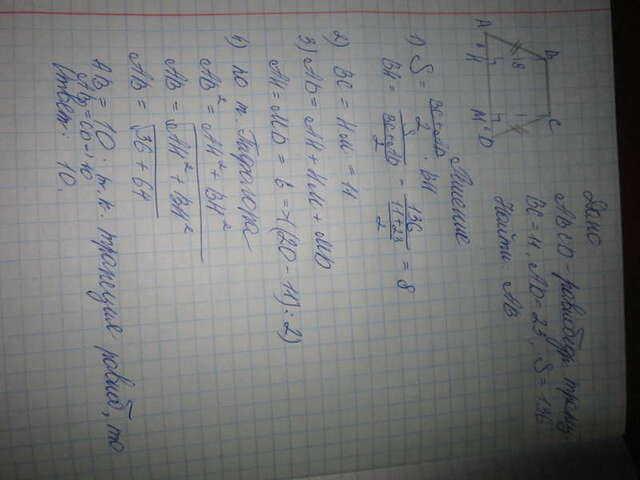 Дано
ABCD - равнобедр. трапец.
BC = 11, AD = 23, S = 136
Найти: AB
A
B
C
D
H
M
6
8
6
Решение
1) S = BC+AD/2 · BH
BH = S/BC+AD/2 = 136/11+23/2 = 8
2) BC = HM = 11
3) AD = AH + HM + MD
AH = MD = 6 => ((20 - 11) : 2)
4) по т. Пифагора
AB² = AH² + BH²
AB = √AH² + BH²
AB = √36 + 64
AB = 10; т.к. трапеция равноб, то
AB = CD = 10
Ответ: 10.